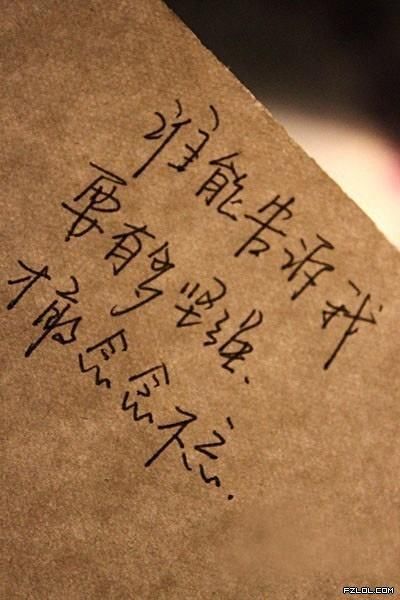 谁能告诉我
要有多坚强.
才敢念念不忘.
PZLOL.COM